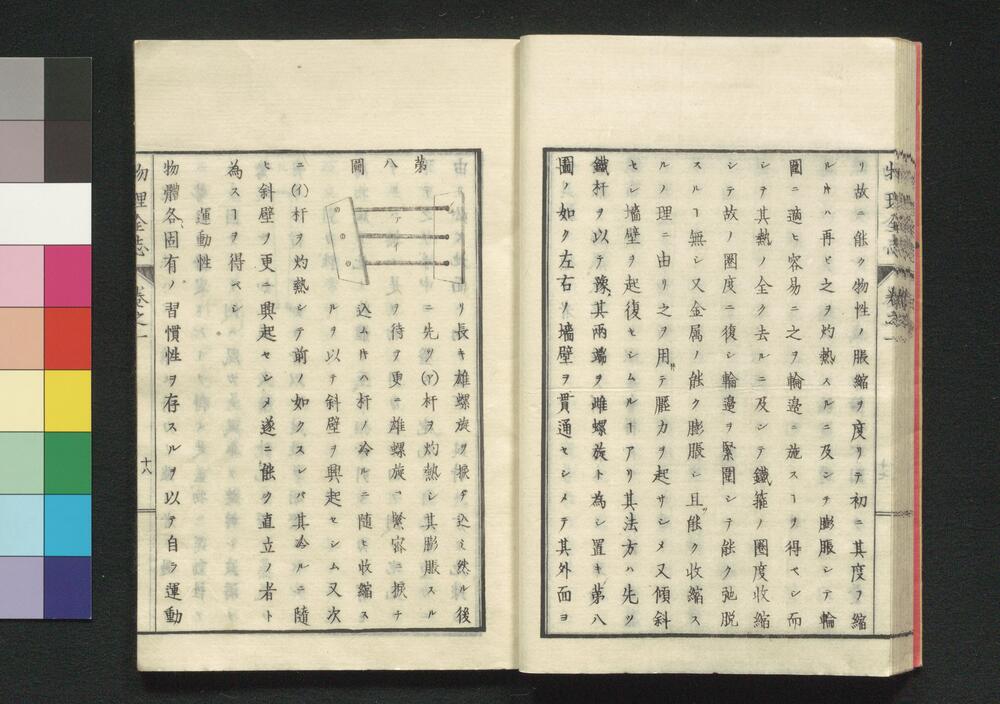 リ故ニ能ク物性ノ脹縮ヲ度リテ初ニ其度ヲ縮
ルヿハ再ヒ之ヲ灼熱スルニ及ンテ膨脹シテ輪
圍ニ適ヒ容易ニ之ヲ輪邊ニ施スヿヲ得ヘシ而
シテ其熱ノ全ク去ルニ及ンテ鐵箍ノ圏度収縮
シテ故ノ圏度ニ復シ輪邊ヲ緊圍シテ能ク弛脱
スルヿ無シ又金属ノ能ク膨脹シ且能ク収縮ス
ルノ理ニ由リ之ヲ用ヰ壓力ヲ起サシメ又傾斜
セシ墻壁ヲ起復セシムルヿアリ其法方ハ先ツ
鐵杆ヲ以テ豫メ其両端ヲ雌雄螺旋ト為シ置キ第八
圖ノ如ク左右ノ墻壁ヲ貫通セシメテ其外面ヨ
物理全志
巻之一
リ長キ雄螺旋ヲ捩チ込ミ然ル後
ニ先ツ(ア)杆ヲ灼熱シ其膨脹スル
ヲ待ヲ更ニ雄螺旋ヲ緊密ニ捩チ
込ムトキハ杆ノ冷ルニ随ヒ収縮ス
ルヲ以テ斜壁ヲ興起セシム又次
第八圖
ニ(イ)杆ヲ灼熱シテ前ノ如クスレバ其冷ルニ隨
ヒ斜壁ノ更ニ興起セシメ遂ニ能ク直立ノ者ト
為スヿヲ得ベシ
運動性
物體各固有ノ習慣性ヲ存スルヲ以テ自ラ運動
物理全志
巻之一
十八